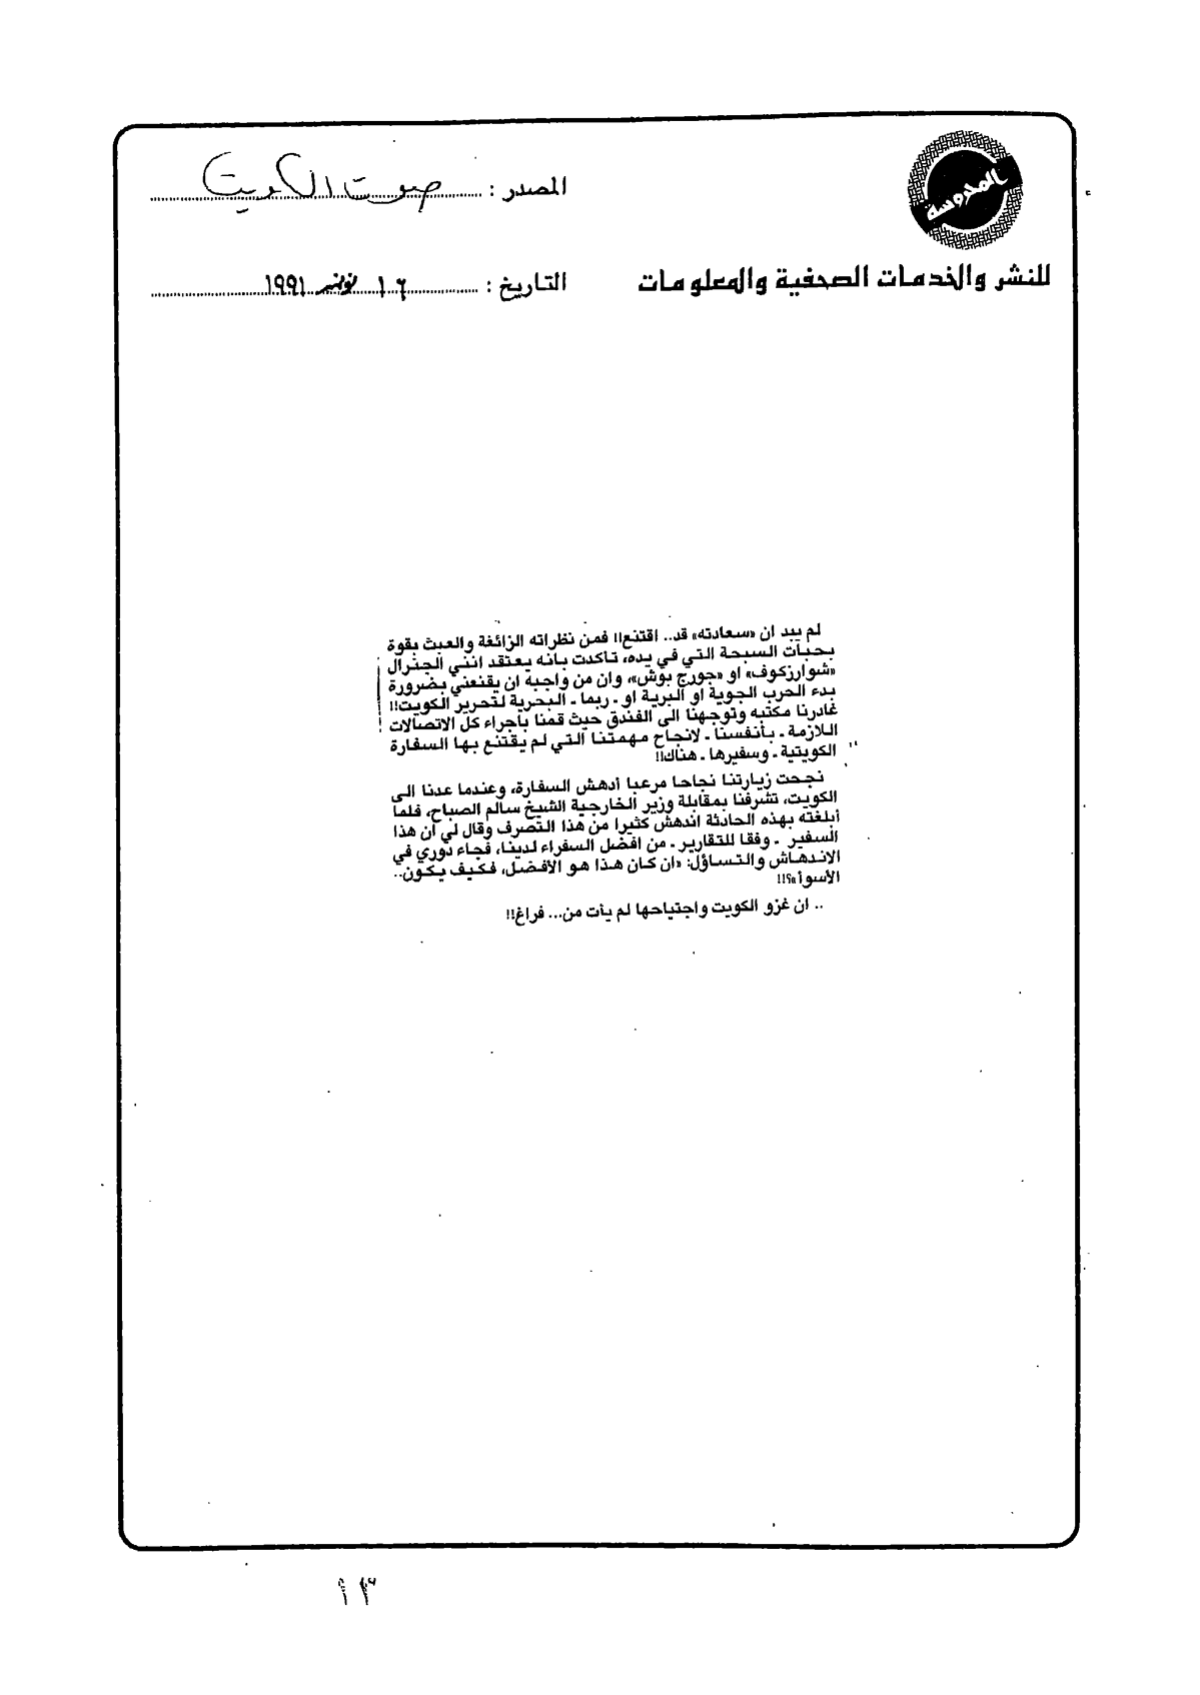 المحروسة
للنشر والخدمات الصحفية والمعلومات
المصدر : صوت الكويت
التاريخ : ١٦ نوفمبر ١٩٩١
لم يبد ان «سعادته» قد.. اقتنع!! فمن نظراته الزائغة والعبث بقوة
بحبات السبحة التي في يده، تأكدت بانه يعتقد انني الجنرال
«شوارزكوف» او «جورج بوش»، وان من واجبه ان يقنعني بضرورة
بدء الحرب الجوية او البرية او ـ ربما ـ البحرية لتحرير الكويت!!
غادرنا مكتبه وتوجهنا الى الفندق حيث قمنا باجراء كل الاتصالات
اللازمة ـ بأنفسنا ـ لانجاح مهمتنا التي لم يقتنع بها السفارة
الكويتية ـ وسفيرها ـ هناك!!
نجحت زيارتنا نجاحا مرعبا أدهش السفارة، وعندما عدنا الى
الكويت، تشرفنا بمقابلة وزير الخارجية الشيخ سالم الصباح، فلما
أبلغته بهذه الحادثة اندهش كثيرا من هذا التصرف وقال لي ان هذا
السفير ـ وفقا للتقارير ـ من افضل السفراء لدينا، فجاء دوري في
الاندهاش والتساؤل: «ان كان هذا هو الأفضل، فكيف يكون..
الأسوأ»؟!!
.. ان غزو الكويت واجتياحها لم يأت من... فراغ!!
١٣